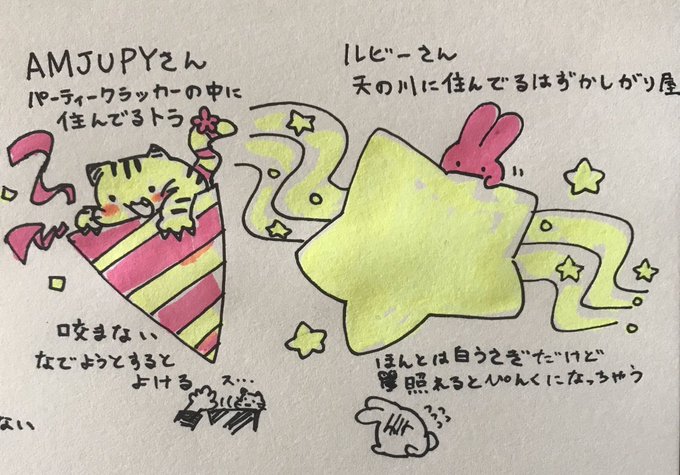 AMJUPYさん
パーティークラッカーの中に
住んでるトラ
咬まない
なでようとすると
よける
ス…
ない
ルビーさん
天の川に住んでるはずかしがり屋
ほんとは白うさぎだけど
照れるとぴんくになっちゃう